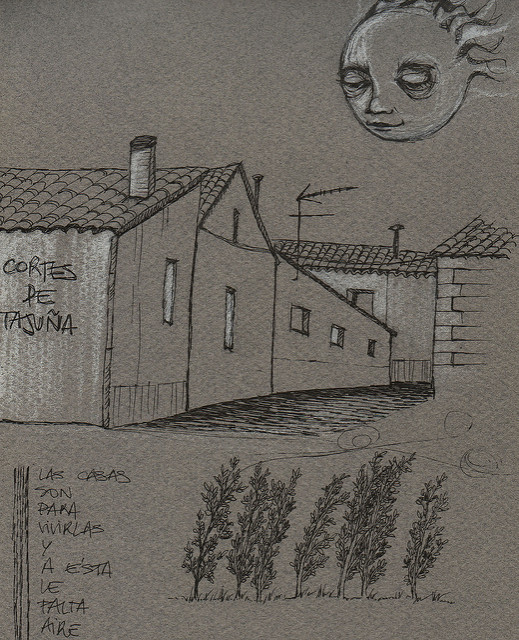 CORTES
DE
TAJUÑA
LAS CASAS
SON
PARA
VIVIRLAS
Y
A ÉSTA
LE
FALTA
AIRE